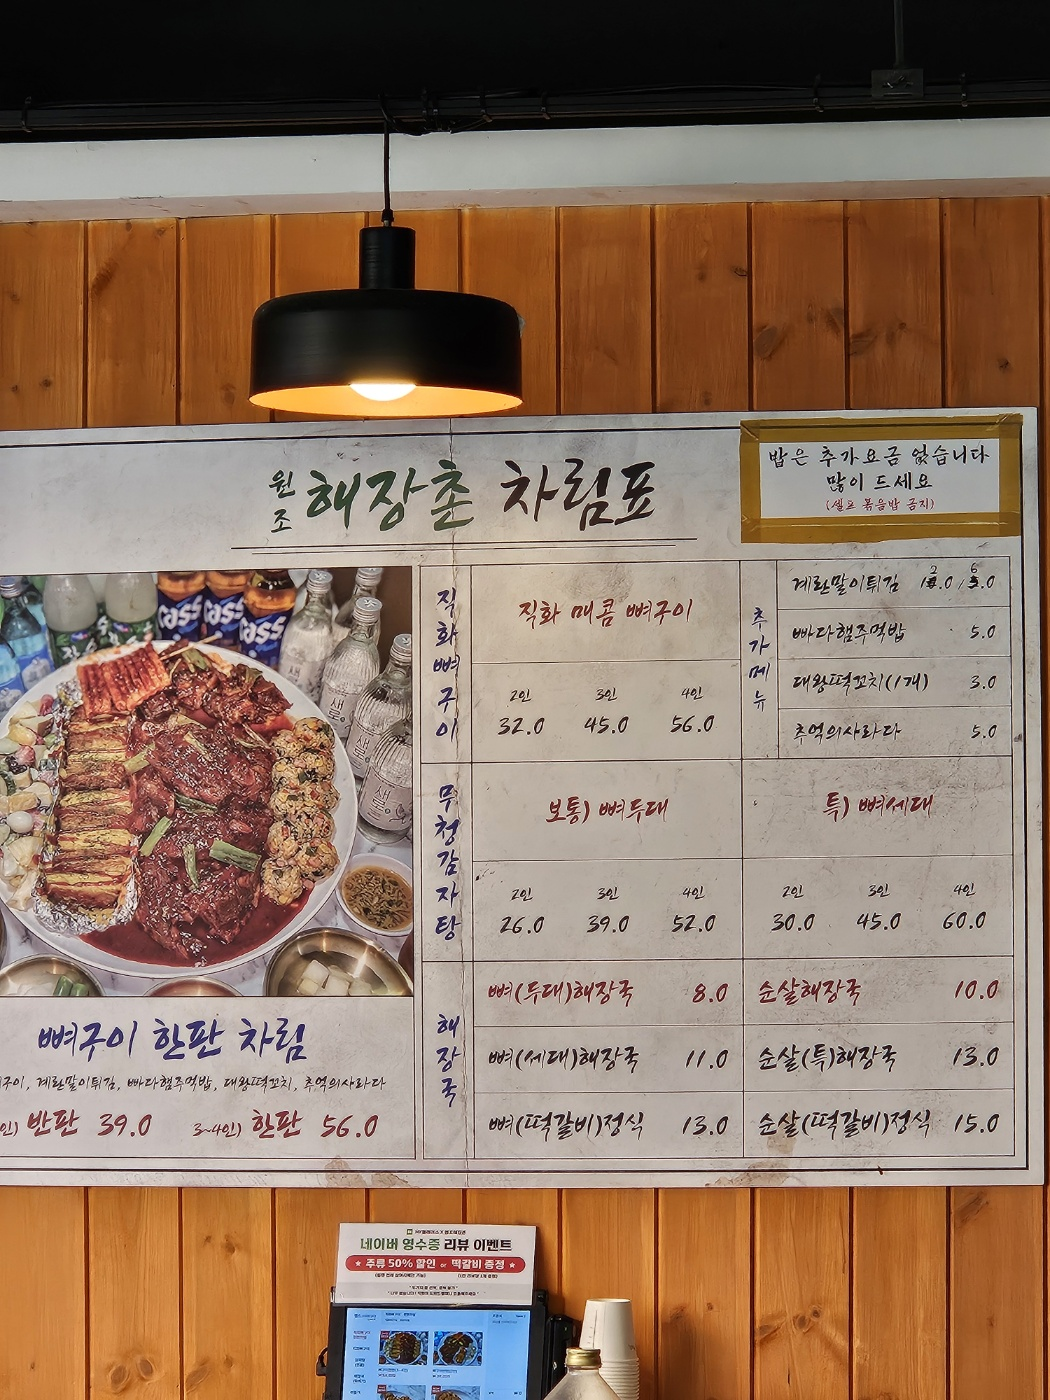 원조 해장촌 차림표
밥은 추가요금 없습니다
많이 드세요
(셀프 볶음밥 금지)
직화뼈구이
직화 매콤 뼈구이
2인 3인 4인
32.0 45.0 56.0
추가메뉴
계란말이튀김 12.0 / 6.0
빠다햄주먹밥 5.0
대왕떡꼬치(1개) 3.0
추억의사라다 5.0
무청감자탕
보통) 뼈두대
2인 3인 4인
26.0 39.0 52.0
특) 뼈세대
2인 3인 4인
30.0 45.0 60.0
해장국
뼈(두대)해장국 8.0
순살해장국 10.0
뼈(세대)해장국 11.0
순살(특)해장국 13.0
뼈(떡갈비)정식 13.0
순살(떡갈비)정식 15.0
cass cass cass
새로 새로 새로
뼈구이 한판 차림
구이, 계란말이튀김, 빠다햄주먹밥, 대왕떡꼬치, 추억의사라다
인) 반판 39.0 3~4인) 한판 56.0
네이버 영수증 리뷰 이벤트
★ 주류 50% 할인 or 떡갈비 증정 ★